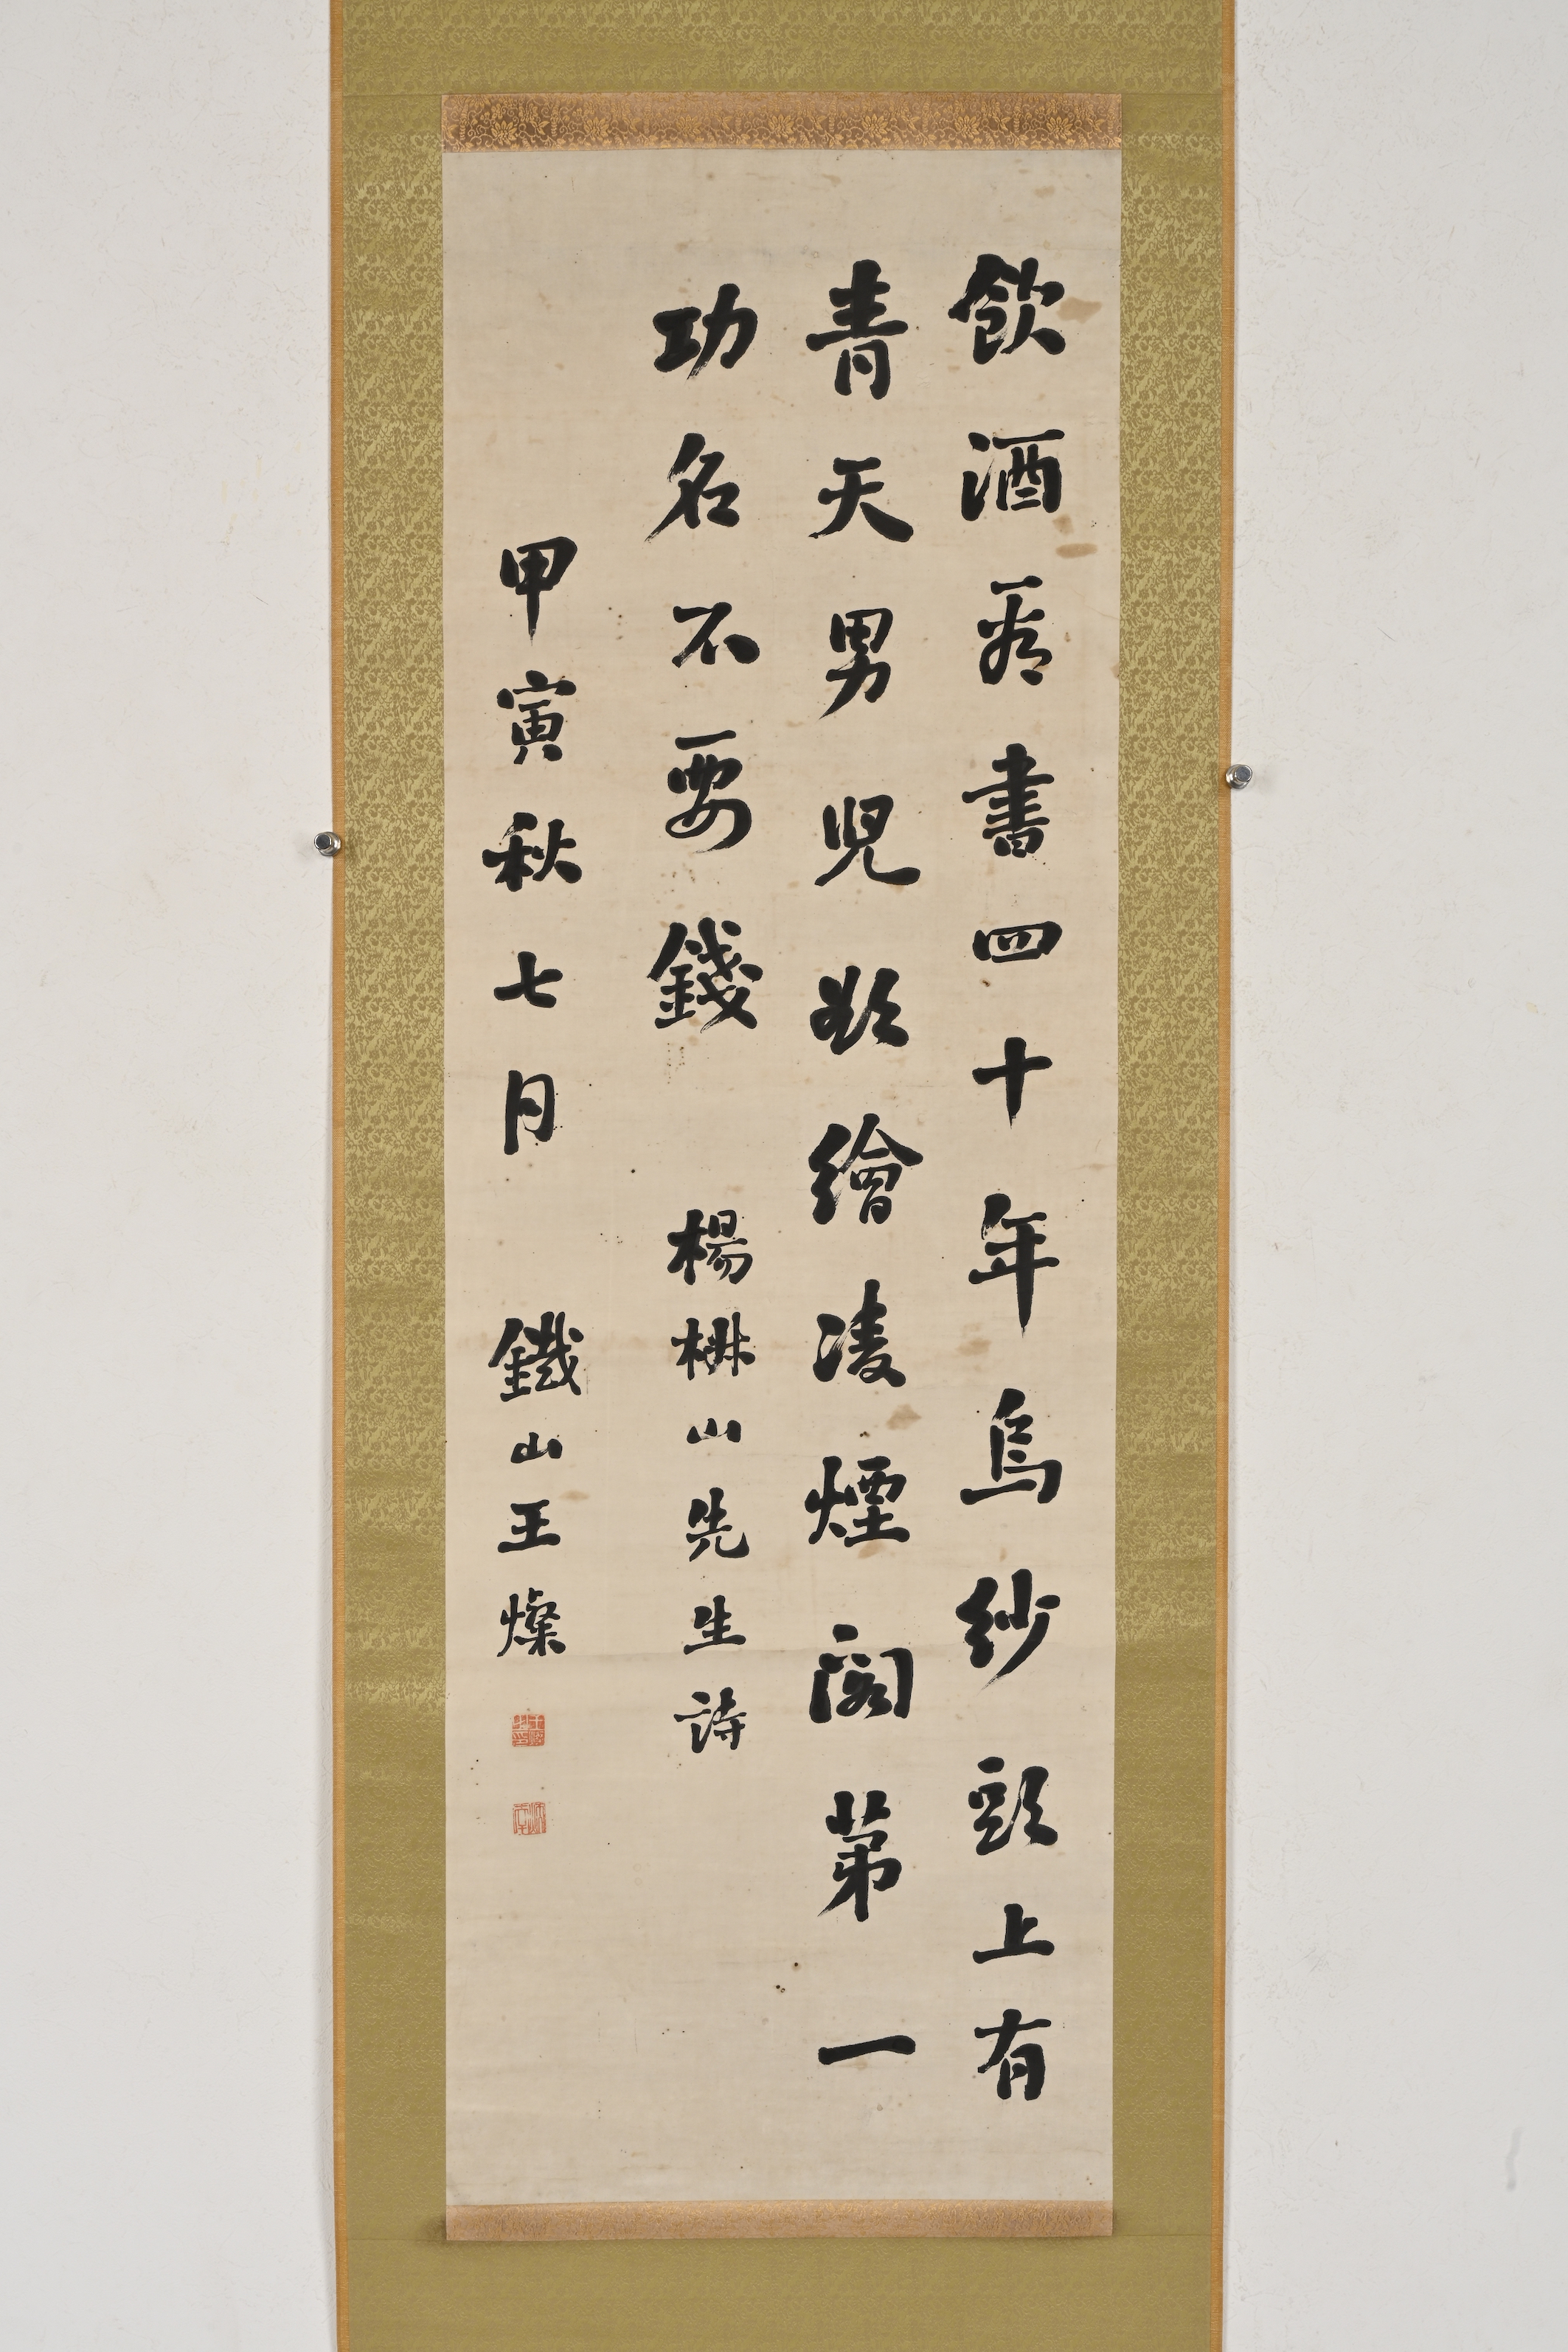 飲酒看書四十年烏紗頭上有
青天男兒欲繪凌煙閣第一
功名不要錢 楊椒山先生詩
甲寅秋七月 鐵山王燦